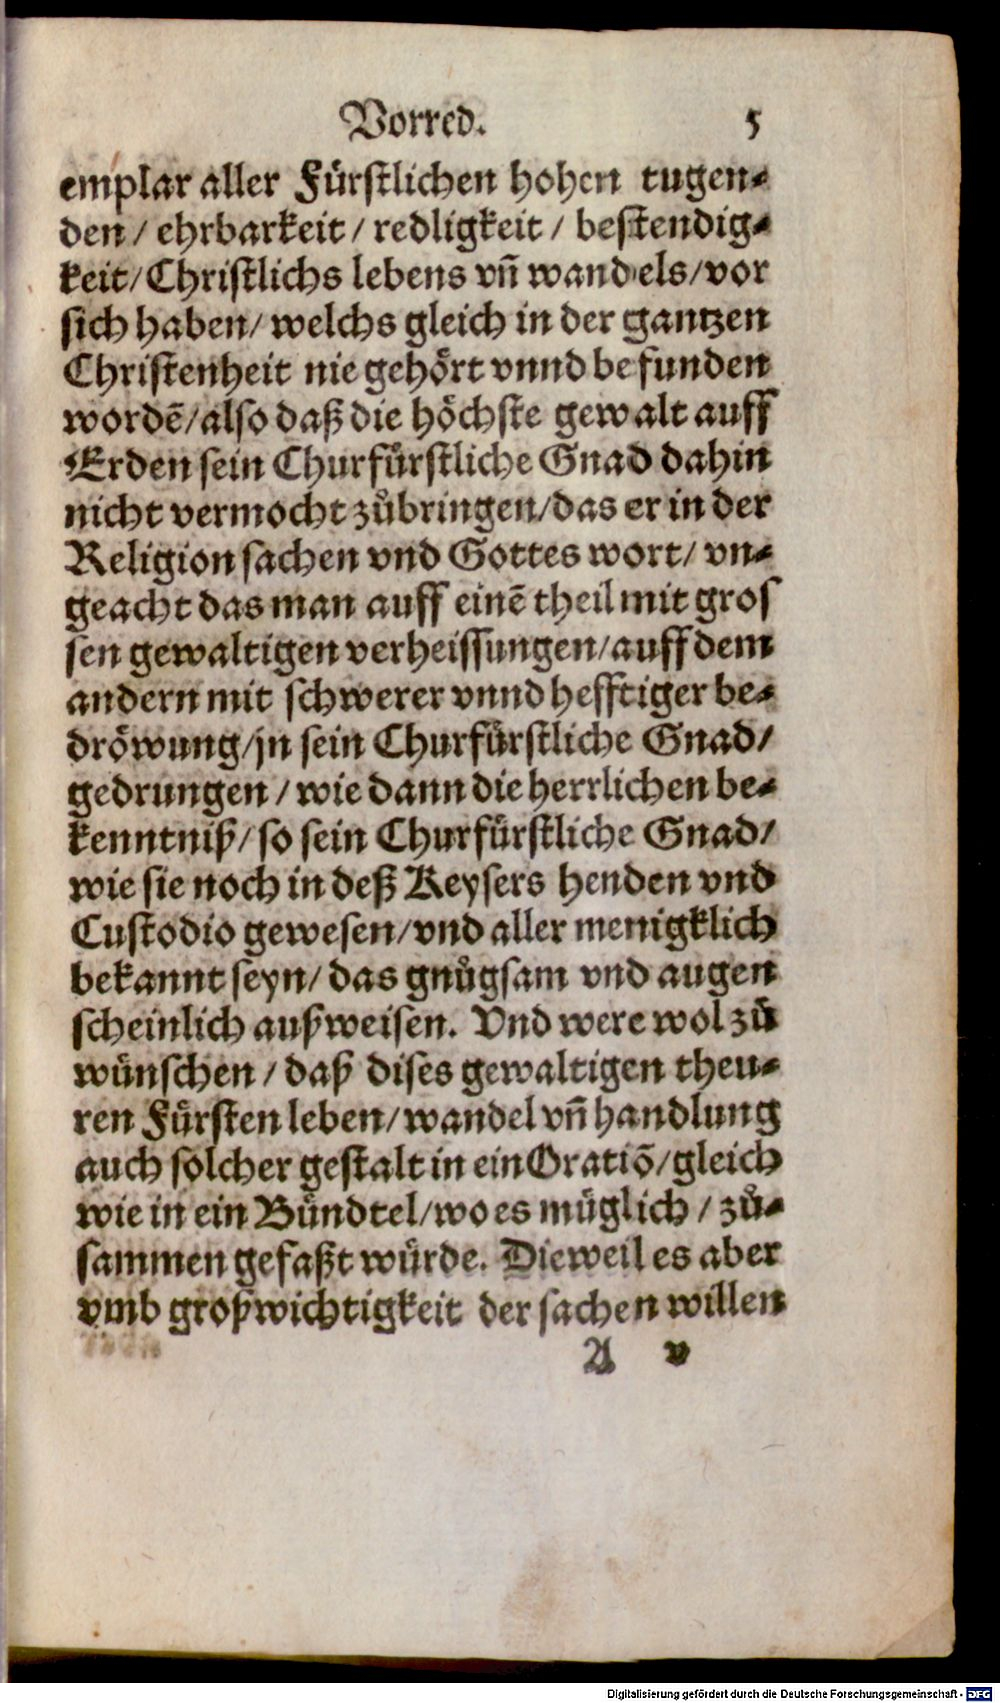 Vorred. 5
emplar aller Fürstlichen hohen tugen-
den / ehrbarkeit / redligkeit / bestendig-
keit / Christlichs lebens vn̄ wandels / vor
sich haben / welchs gleich in der gantzen
Christenheit nie gehört vnnd befunden
wordē / also daß die höchste gewalt auff
Erden sein Churfürstliche Gnad dahin
nicht vermocht zůbringen / das er in der
Religion sachen vnd Gottes wort / vn-
geacht das man auff einē theil mit gros
sen gewaltigen verheissungen / auff dem
andern mit schwerer vnnd hefftiger be-
dröwung / jn sein Churfürstliche Gnad /
gedrungen / wie dann die herrlichen be-
kenntniß / so sein Churfürstliche Gnad /
wie sie noch in deß Keysers henden vnd
Custodio gewesen / vnd aller menigklich
bekannt seyn / das gnůgsam vnd augen
scheinlich außweisen. Vnd were wol zů
wünschen / daß dises gewaltigen theu-
ren Fürsten leben / wandel vn̄ handlung
auch solcher gestalt in ein Oratiō / gleich
wie in ein Bündtel / wo es müglich / zů-
sammen gefaßt würde. Dieweil es aber
vmb großwichtigkeit der sachen willen
A v
Digitalisierung gefördert durch die Deutsche Forschungsgemeinschaft - DFG